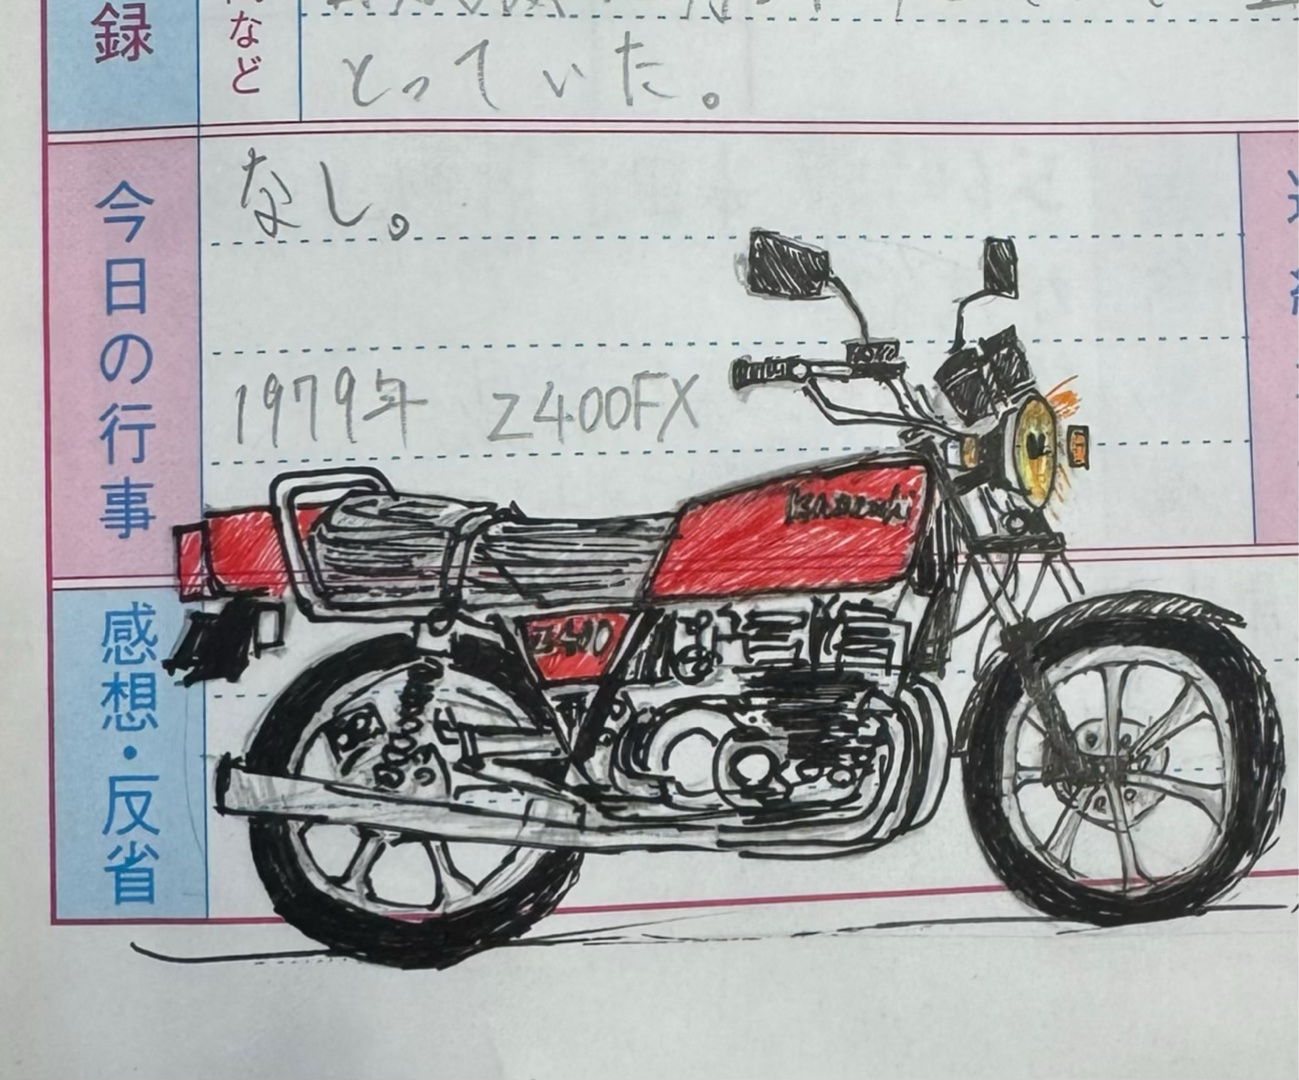 録
など
とっていた。
今日の行事
なし。
1979年 Z400FX
Kawasaki
Z400
感想・反省